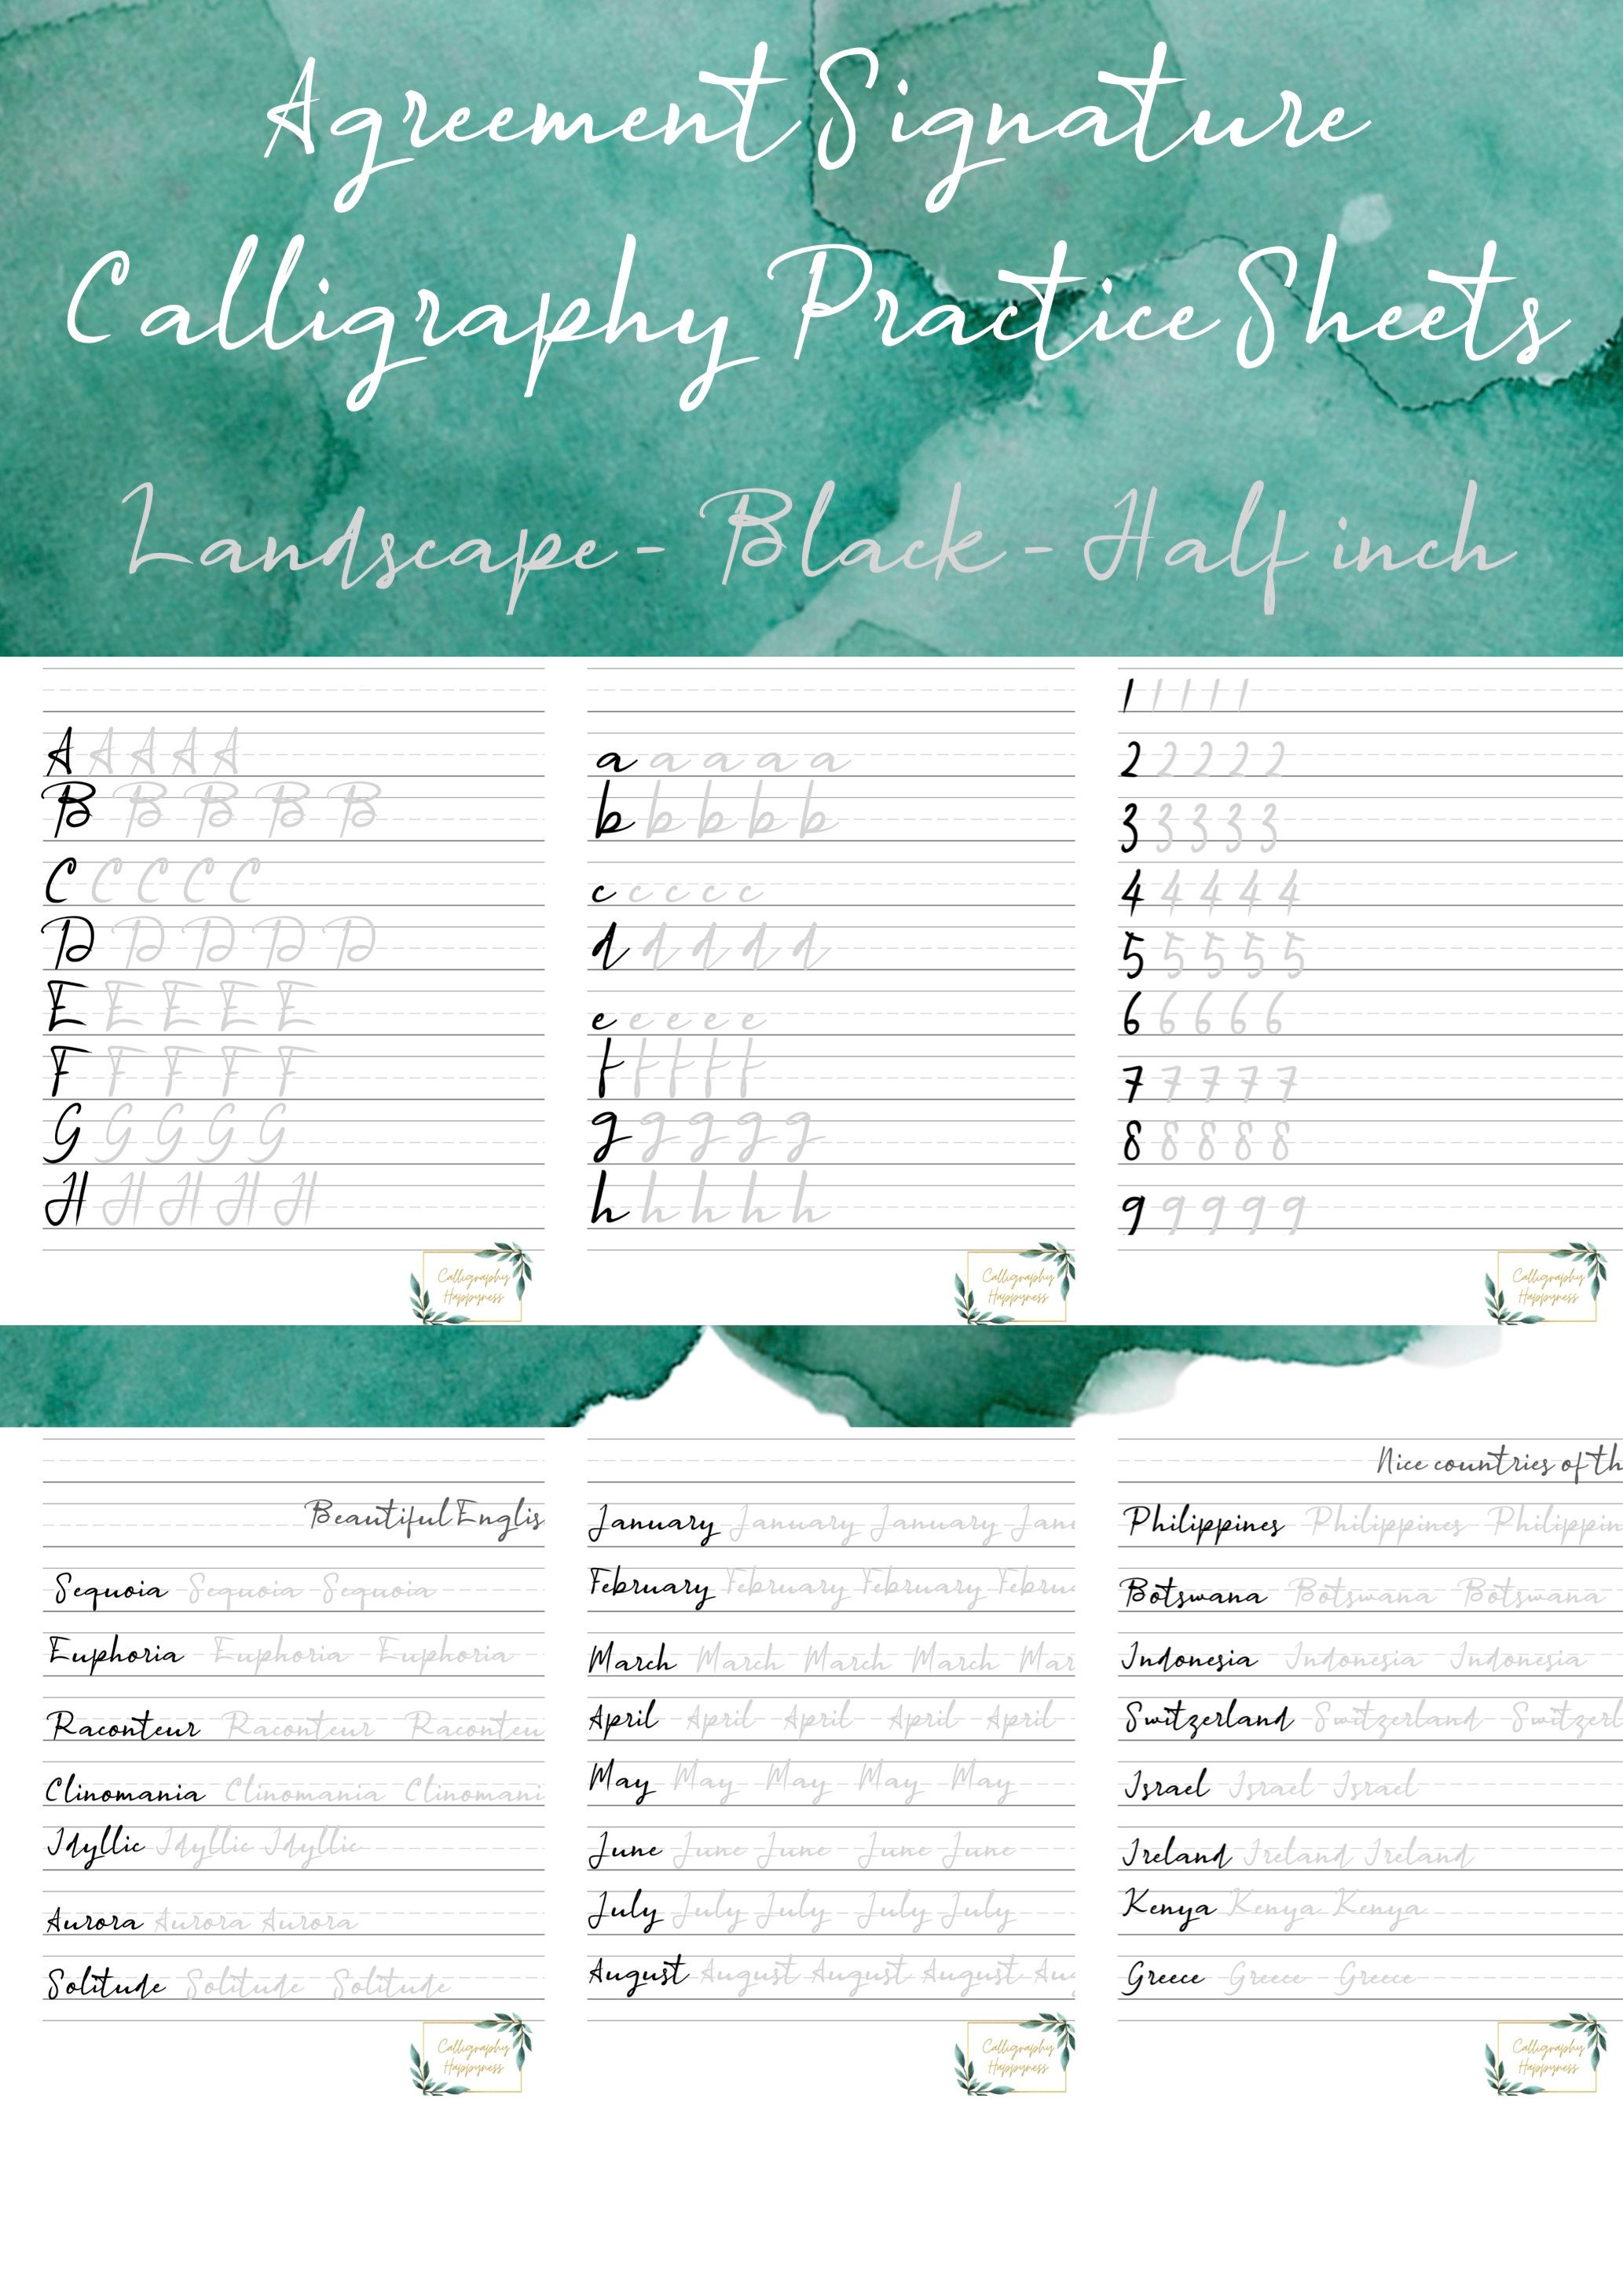 Agreement Signature
Calligraphy Practice Sheets
Landscape - Black - Half inch
A A A A A
B B B B B
C C C C C
D D D D D
E E E E E
F F F F F
G G G G G
H H H H H
Calligraphy
Happyness
a a a a a
b b b b b
c c c c c
d d d d d
e e e e e
f f f f f
g g g g g
h h h h h
Calligraphy
Happyness
1 1 1 1 1
2 2 2 2 2
3 3 3 3 3
4 4 4 4 4
5 5 5 5 5
6 6 6 6 6
7 7 7 7 7
8 8 8 8 8
9 9 9 9 9
Calligraphy
Happyness
Beautiful Englis
Sequoia Sequoia Sequoia
Euphoria Euphoria Euphoria
Raconteur Raconteur Raconteu
Clinomania Clinomania Clinomani
Idyllic Idyllic Idyllic
Aurora Aurora Aurora
Solitude Solitude Solitude
Calligraphy
Happyness
January January January Janu
February February February Februa
March March March March Mar
April April April April April
May May May May May
June June June June June
July July July July July
August August August August Aug
Calligraphy
Happyness
Nice countries of th
Philippines Philippines Philippin
Botswana Botswana Botswana
Indonesia Indonesia Indonesia
Switzerland Switzerland Switzerl
Israel Israel Israel
Ireland Ireland Ireland
Kenya Kenya Kenya
Greece Greece Greece
Calligraphy
Happyness